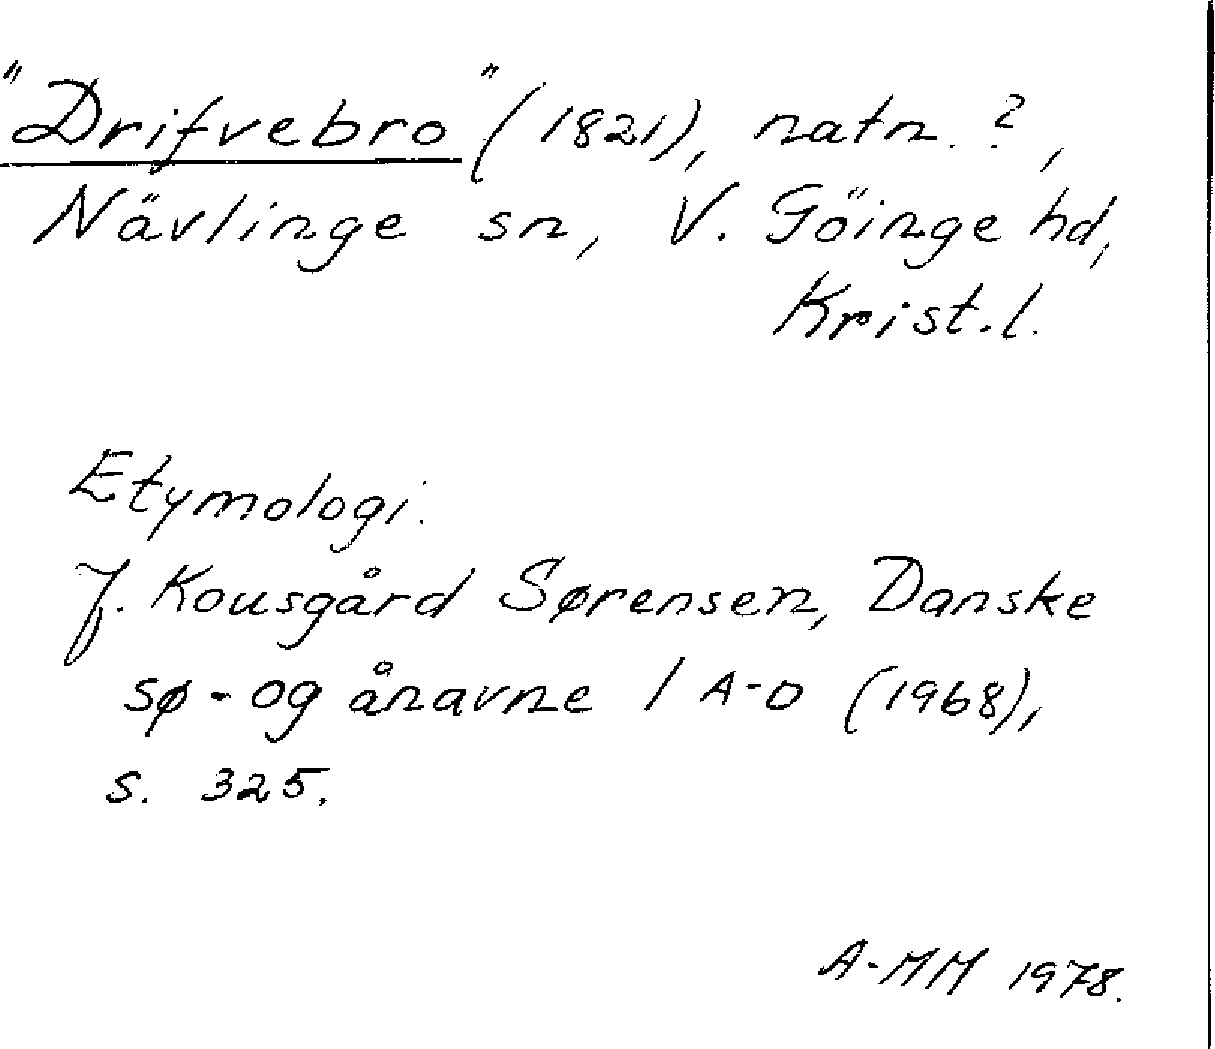 "Drifvebro" (1821), natn. ?,
Nävlinge sn, V. Göinge hd,
Krist. l.
Etymologi.
J. Kousgård Sørensen, Danske
sø- og ånavne 1 A-D (1968),
s. 325.
A-MM 1978.